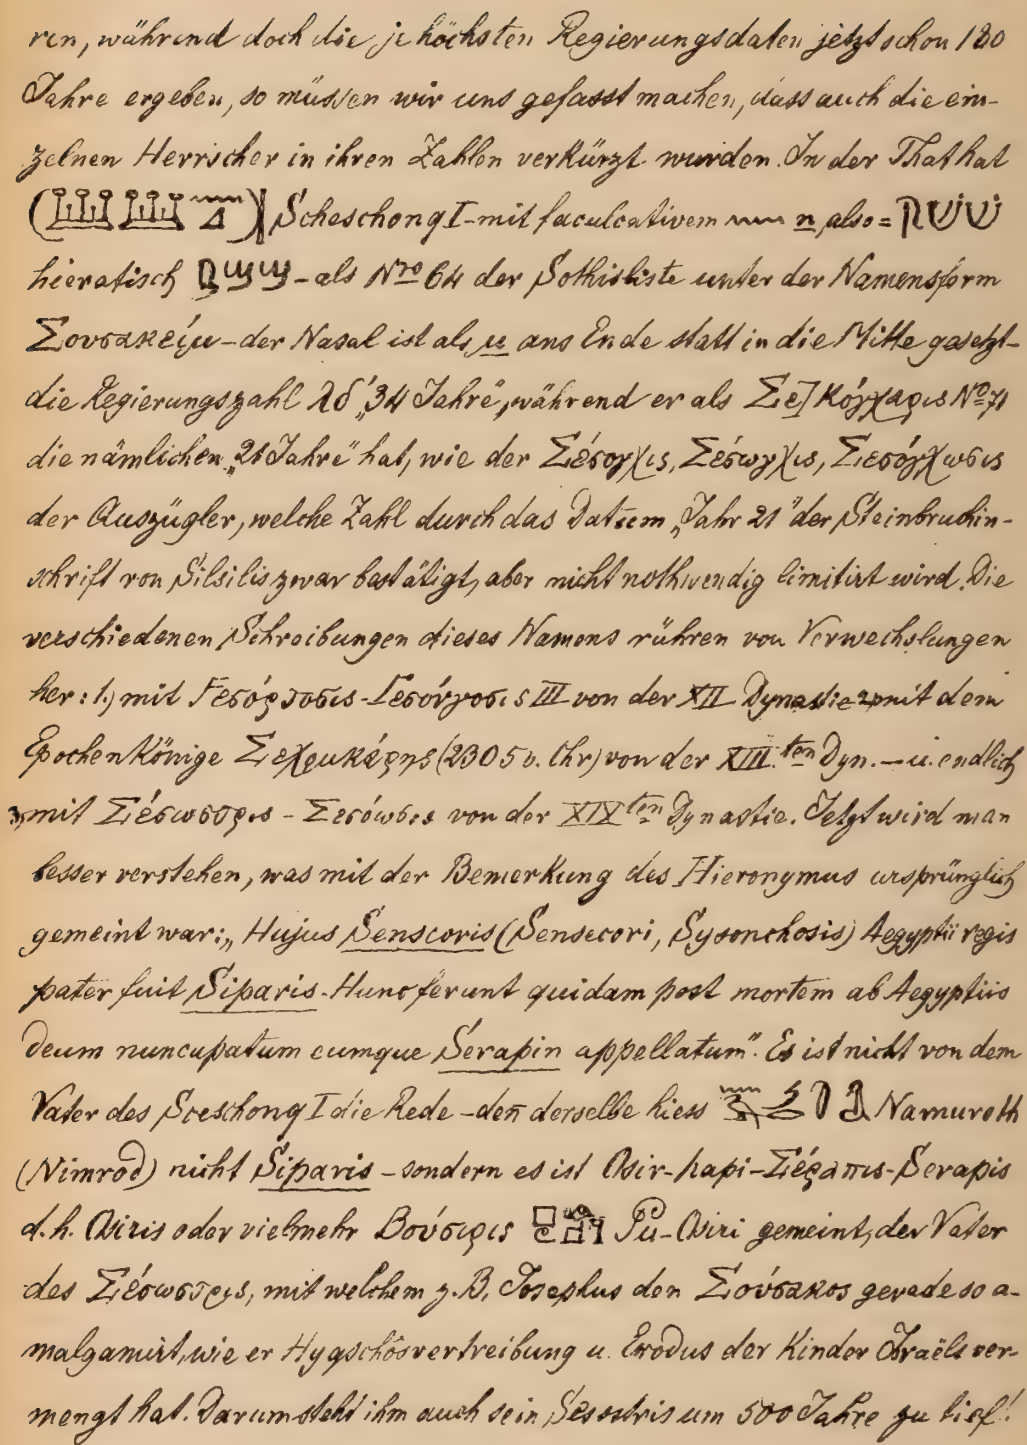 ren, während doch die je höchsten Regierungsdaten jetzt schon 180
Jahre ergeben, so müssen wir uns gefasst machen, dass auch die ein-
zelnen Herrscher in ihren Zahlen verkürzt wurden. In der That hat
Scheschonq I - mit faculcativem n, also =
hieratisch - als Nro 64 der Sothisliste unter der Namensform
Σουσακείμ - der Nasal ist als μ ans Ende statt in die Mitte gesetzt -
die Regierungszahl λδ´ „34 Jahre“, während er als Σε] Κόγχαρις No 71
die nämlichen „21 Jahre“ hat, wie der Σέσογχις, Σέσωγχις, Σεσόγχωσις
der Auszügler, welche Zahl durch das Datum „Jahr 21“ der Steinbruchin-
schrift von Silsilis zwar bestätigt, aber nicht nothwendig limitirt wird. Die
verschiedenen Schreibungen dieses Namens rühren von Verwechslungen
her: 1.) mit III von der XII Dynastie 2) mit dem
Epochenkönige (2305 v. Chr) von der XIII.ten Dyn. - u. endlich
3, mit Σέσωστρις - Σεσόωσις von der XIXten Dynastie. Jetzt wird man
besser verstehen, was mit der Bemerkung des Hieronymus ursprünglich
gemeint war: „Hujus Senscoris (Sensecori, Sysonchosis) Aegyptii regis
pater fuit Siparis. Hunc ferunt quidam post mortem ab Aegyptiis
deum nuncupatum eumque Serapin appellatum“. Es ist nicht von dem
Vater des Sceschonq I die Rede - den̄ derselbe hiess Namuroth
(Nimrod) nicht Siparis - sondern es ist Osir-hapi - Σέραπις - Serapis
d. h. Osiris oder vielmehr Βούσιρις Pu-Osiri gemeint, der Vater
des Σέσωστρις, mit welchem z. B. Josephus den Σούσακος gerade so a-
malgamirt, wie er Hyqschôsvertreibung u. Exodus der Kinder Israëls ver-
mengt hat. Darum steht ihm auch sein Sesostris um 500 Jahre zu tief!